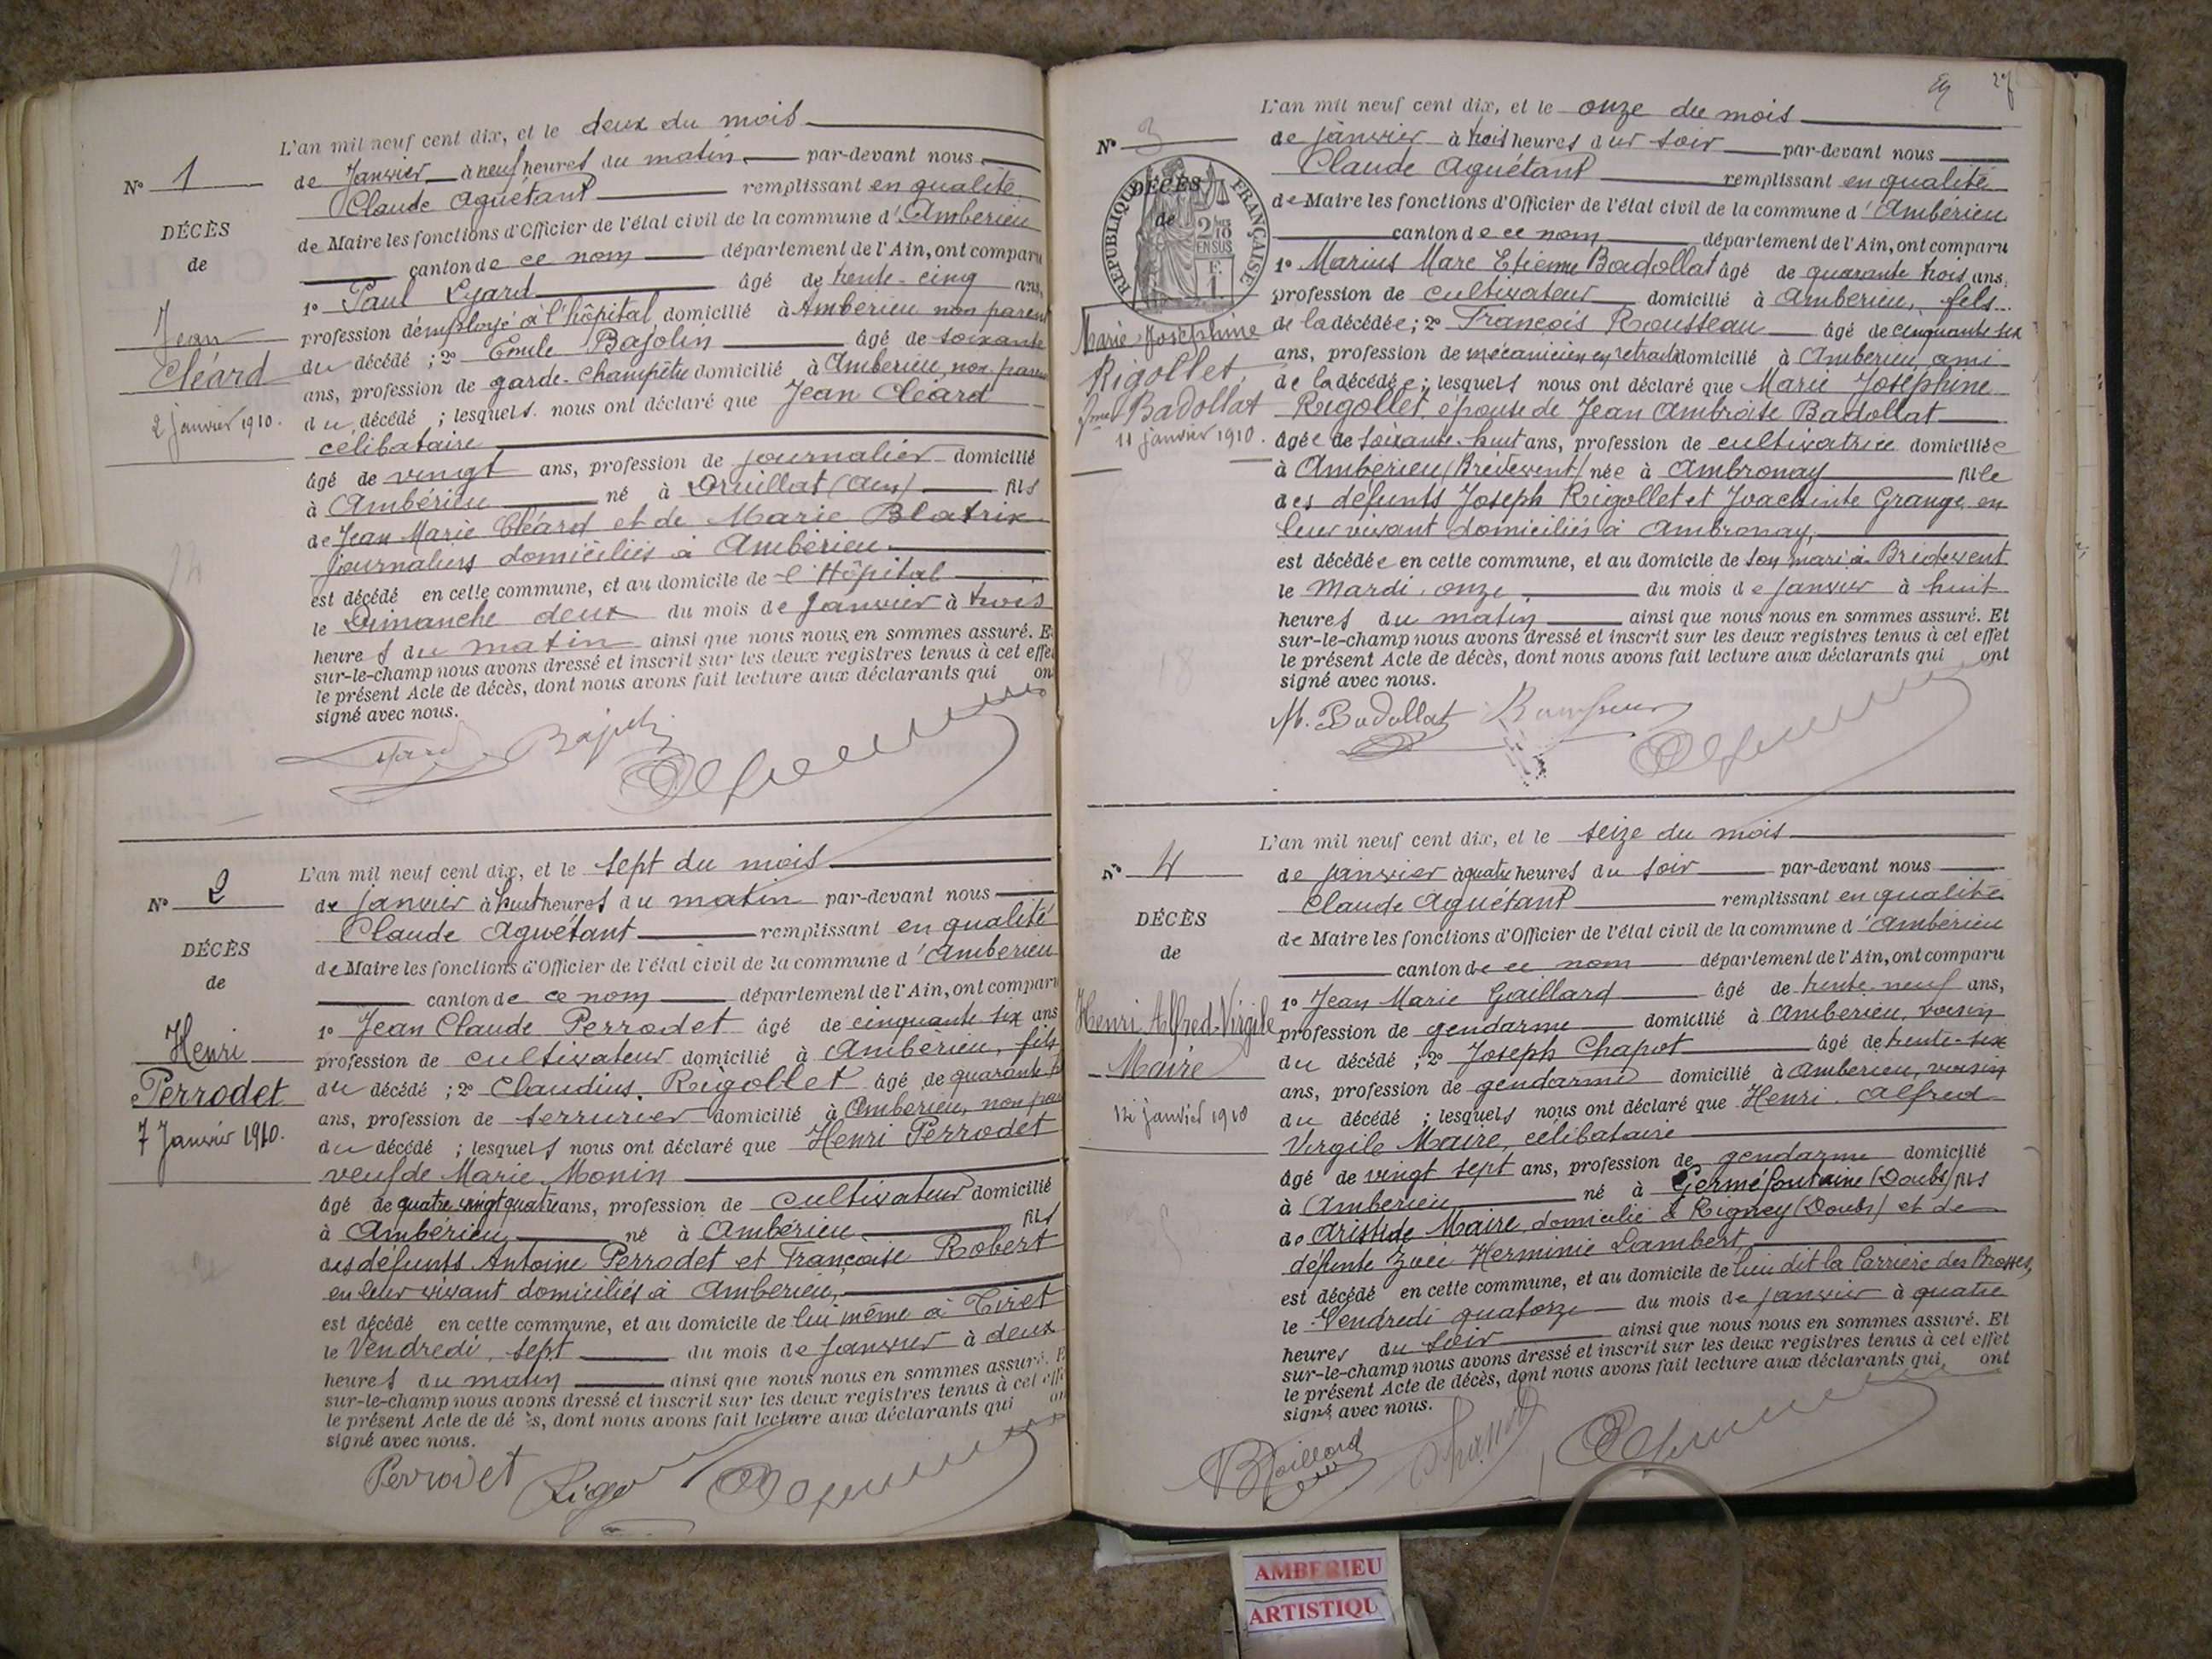 L'an mil neuf cent dix, et le deux du mois
N° 1
de Janvier à neuf heures du matin par-devant nous
Claude Aguétant remplissant en qualité
DÉCÈS
de
de Maire les fonctions d'Officier de l'état civil de la commune d'Ambérieu
canton de ce nom département de l'Ain, ont comparu
1° Paul Lyard âgé de trente-cinq ans,
profession d'employé à l'hôpital domicilié à Ambérieu non parent
Jean
Cléard
2 janvier 1910.
du décédé ; 2° Emile Bajolin âgé de soixante
ans, profession de garde-Champêtre domicilié à Ambérieu, non parent
du décédé ; lesquels nous ont déclaré que Jean Cléard
célibataire
âgé de vingt ans, profession de journalier domicilié
à Ambérieu né à Druillat (Ain) fils
de Jean Marie Cléard et de Marie Blatrix
journaliers domiciliés à Ambérieu.
est décédé en cette commune, et au domicile de l'Hôpital
le Dimanche deux du mois de Janvier à trois
heures du matin ainsi que nous nous en sommes assuré. Et
sur-le-champ nous avons dressé et inscrit sur les deux registres tenus à cet effet
le présent Acte de décès, dont nous avons fait lecture aux déclarants qui ont
signé avec nous.
L'an mil neuf cent dix, et le sept du mois
N° 2
de janvier à huit heures du matin par-devant nous
Claude Aguétant remplissant en qualité
DÉCÈS
de
de Maire les fonctions d'Officier de l'état civil de la commune d'Ambérieu
canton de ce nom département de l'Ain, ont comparu
1° Jean Claude Perrodet âgé de cinquante six ans
Henri
Perrodet
7 Janvier 1910.
profession de cultivateur domicilié à Ambérieu, fils
du décédé ; 2° Claudius Rigollet âgé de quarante
ans, profession de serrurier domicilié à Ambérieu, non par
du décédé ; lesquels nous ont déclaré que Henri Perrodet
veuf de Marie Monin
âgé de quatre vingt quatre ans, profession de cultivateur domicilié
à Ambérieu né à Ambérieu fils
des défunts Antoine Perrodet et Françoise Robert
en leur vivant domiciliés à Ambérieu,
est décédé en cette commune, et au domicile de lui même à Tiret
le Vendredi, sept du mois de janvier à deux
heures du matin ainsi que nous nous en sommes assuré. E
sur-le-champ nous avons dressé et inscrit sur les deux registres tenus à cet effe
le présent Acte de décès, dont nous avons fait lecture aux déclarants qui on
signé avec nous.
Perrodet
L'an mil neuf cent dix, et le onze du mois
N° 3
de janvier à trois heures du soir par-devant nous
Claude Aguétant remplissant en qualité
DÉCÈS
de
RÉPUBLIQUE FRANÇAISE
2/10 EN SUS
de Maire les fonctions d'Officier de l'état civil de la commune d'Ambérieu
canton de ce nom département de l'Ain, ont comparu
1° Marius Marc Etienne Badollat âgé de quarante trois ans,
profession de cultivateur domicilié à Ambérieu, fils
Marie Joséphine
Rigollet
fme Badollat
11 janvier 1910.
de la décédée ; 2° François Rousseau âgé de cinquante six
ans, profession de mécanicien en retraite domicilié à Ambérieu, ami
de la décédée ; lesquels nous ont déclaré que Marie Joséphine
Rigollet, épouse de Jean Ambroise Badollat
âgée de soixante-huit ans, profession de cultivatrice domiciliée
à Ambérieu (Brédevent) née à Ambronay fille
des défunts Joseph Rigollet et Joachinte Grange, en
leur vivant domiciliés à Ambronay,
est décédée en cette commune, et au domicile de son mari à Brédevent
le Mardi, onze du mois de janvier à huit
heures du matin ainsi que nous nous en sommes assuré. Et
sur-le-champ nous avons dressé et inscrit sur les deux registres tenus à cet effet
le présent Acte de décès, dont nous avons fait lecture aux déclarants qui ont
signé avec nous.
M. Badollat
L'an mil neuf cent dix, et le seize du mois
N° 4
de janvier à quatre heures du soir par-devant nous
Claude Aguétant remplissant en qualité
DÉCÈS
de
de Maire les fonctions d'Officier de l'état civil de la commune d'Ambérieu
canton de ce nom département de l'Ain, ont comparu
1° Jean Marie Gaillard âgé de trente-neuf ans,
Henri-Alfred-Virgile
Maire
profession de gendarme domicilié à Ambérieu, voisin
du décédé ; 2° Joseph Chapot âgé de trente-six
ans, profession de gendarme domicilié à Ambérieu, voisin
du décédé ; lesquels nous ont déclaré que Henri Alfred
Virgile Maire, célibataire
âgé de vingt sept ans, profession de gendarme domicilié
à Ambérieu né à Germéfontaine (Doubs) fils
de Aristide Maire, domicilié à Rigney (Doubs) et de
défunte Zoée Herminie Lambert,
est décédé en cette commune, et au domicile de lieu dit la Carrière des Brosses,
le Vendredi quatorze du mois de janvier à quatre
heures du soir ainsi que nous nous en sommes assuré. Et
sur-le-champ nous avons dressé et inscrit sur les deux registres tenus à cet effet
le présent Acte de décès, dont nous avons fait lecture aux déclarants qui ont
signé avec nous.
AMBERIEU
ARTISTIQU